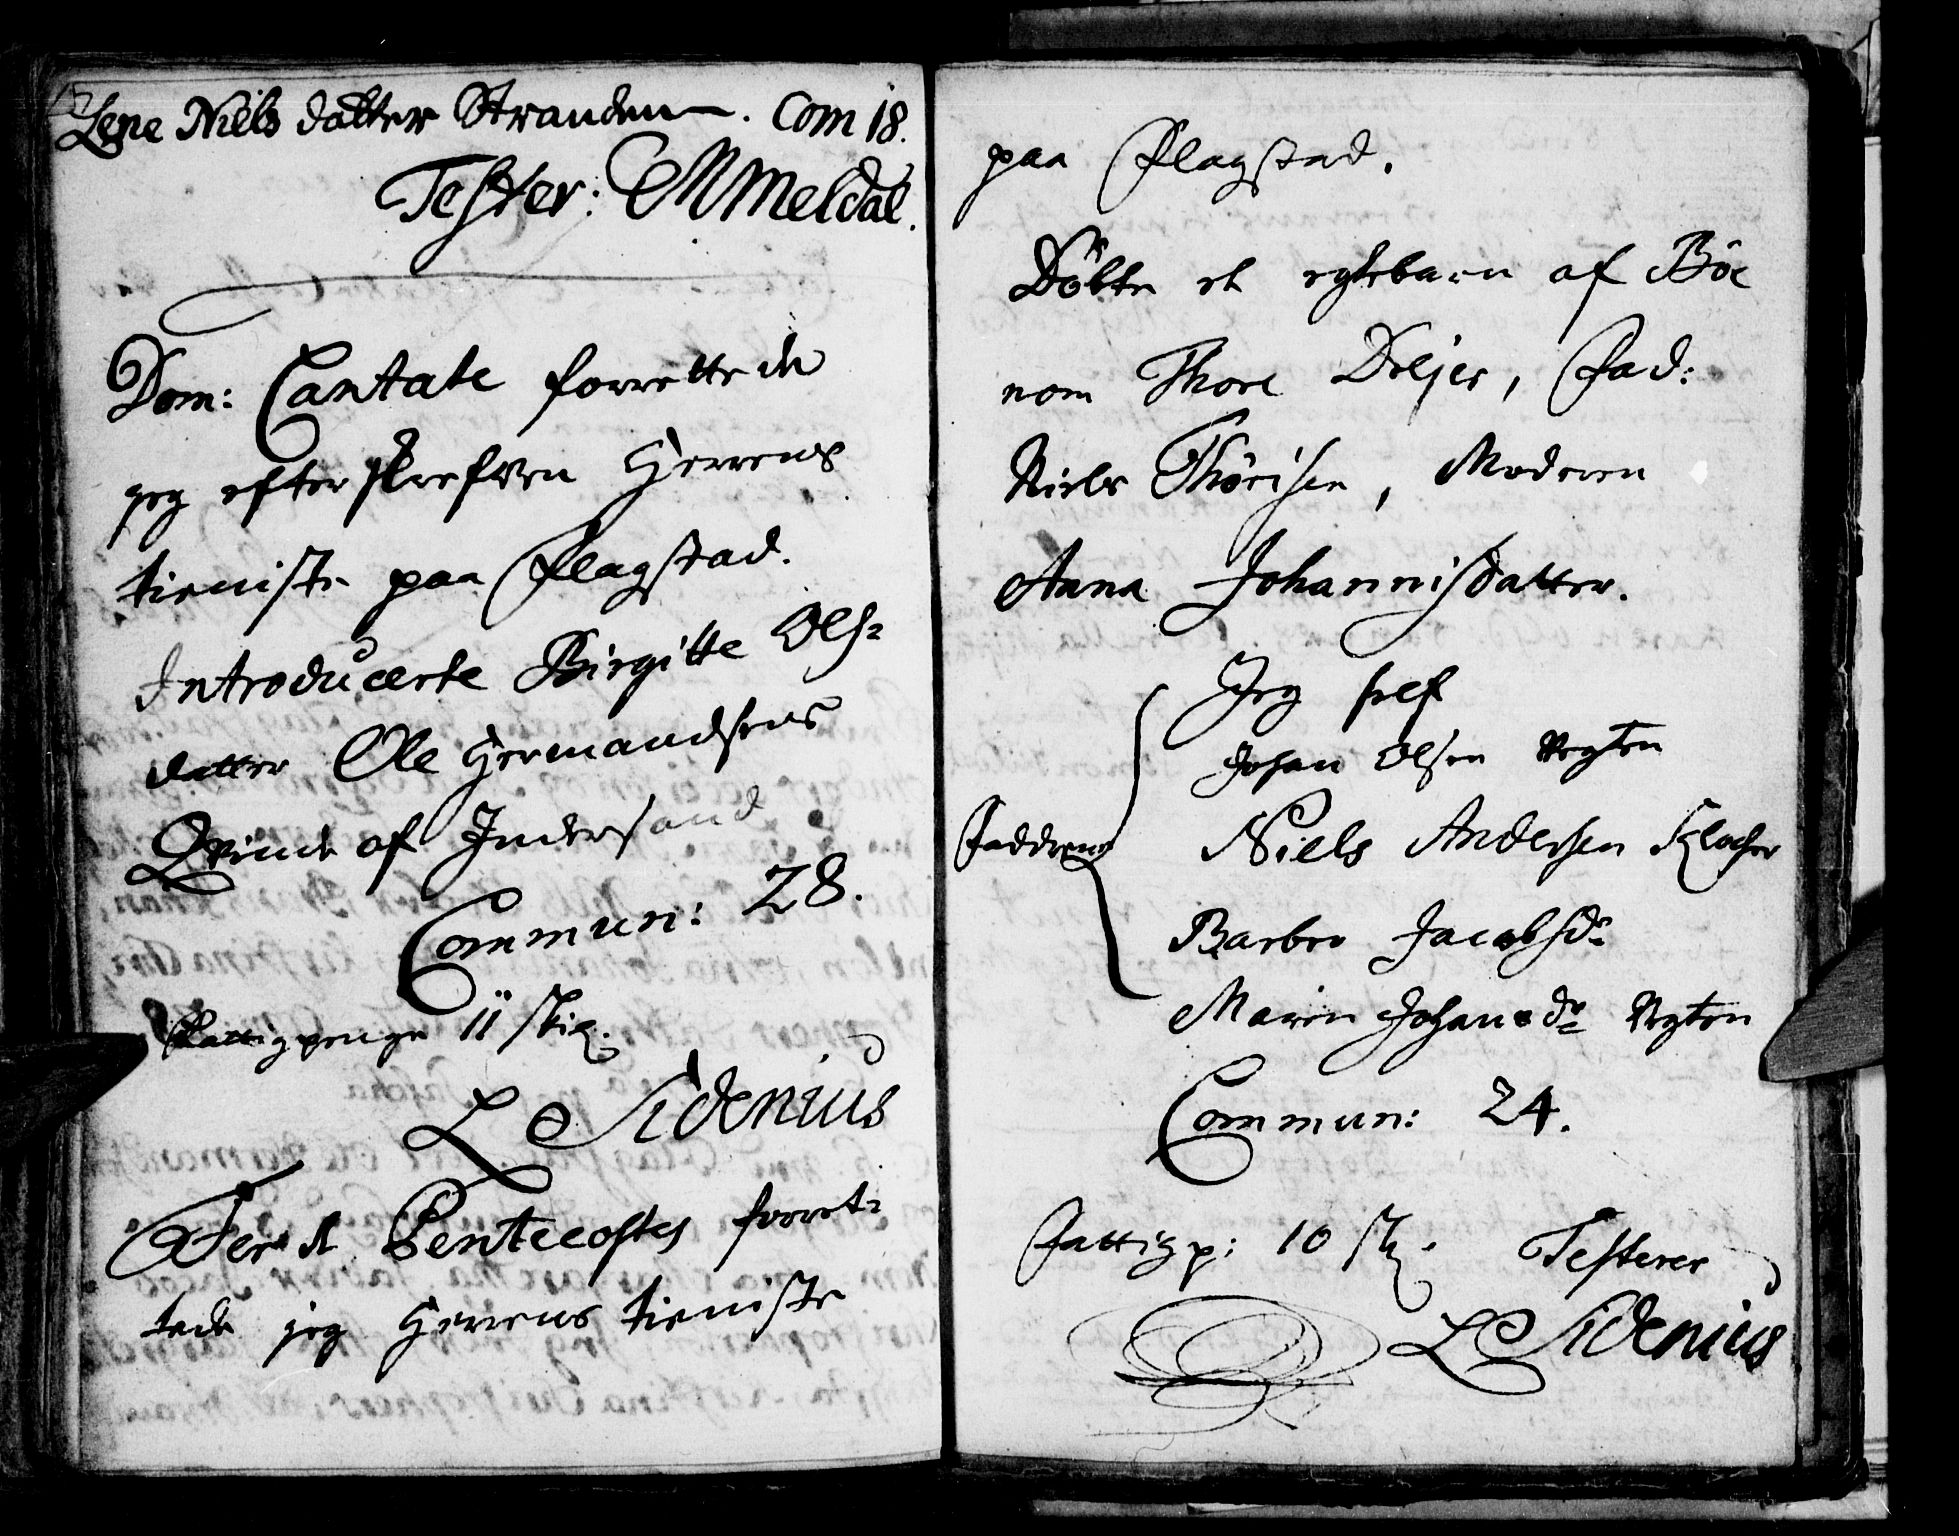 Lene Niels datter Stranden. Com 18.
Tester: MMeldal.
Dom: Cantate forrettede
jeg efterskrefven Herrens
tieniste paa Flagstad.
Introducerte Birgitte Ols=
datter Ole Hermandsens
Qvinde af Indersand
Commun: 28.
Fattigpenge 11 skil.
L C Sidenius
Fer. d Pentecostes forret=
tede jeg Herrens tieniste
paa Flagstad.
Döbte et egtebarn af Böe
nom Thore Drejer, Fad:
Niels Thörisen, Moderen
Anna Johannisdatter.
Jeg self
Johan Olsen Vegten
Fadderne Niels Andersen Klocher
Barbro Jacobsdr
Maren Johansdr Vegten
Commun: 24.
Fattigp: 10 sk. Testerer
L C Sidenius